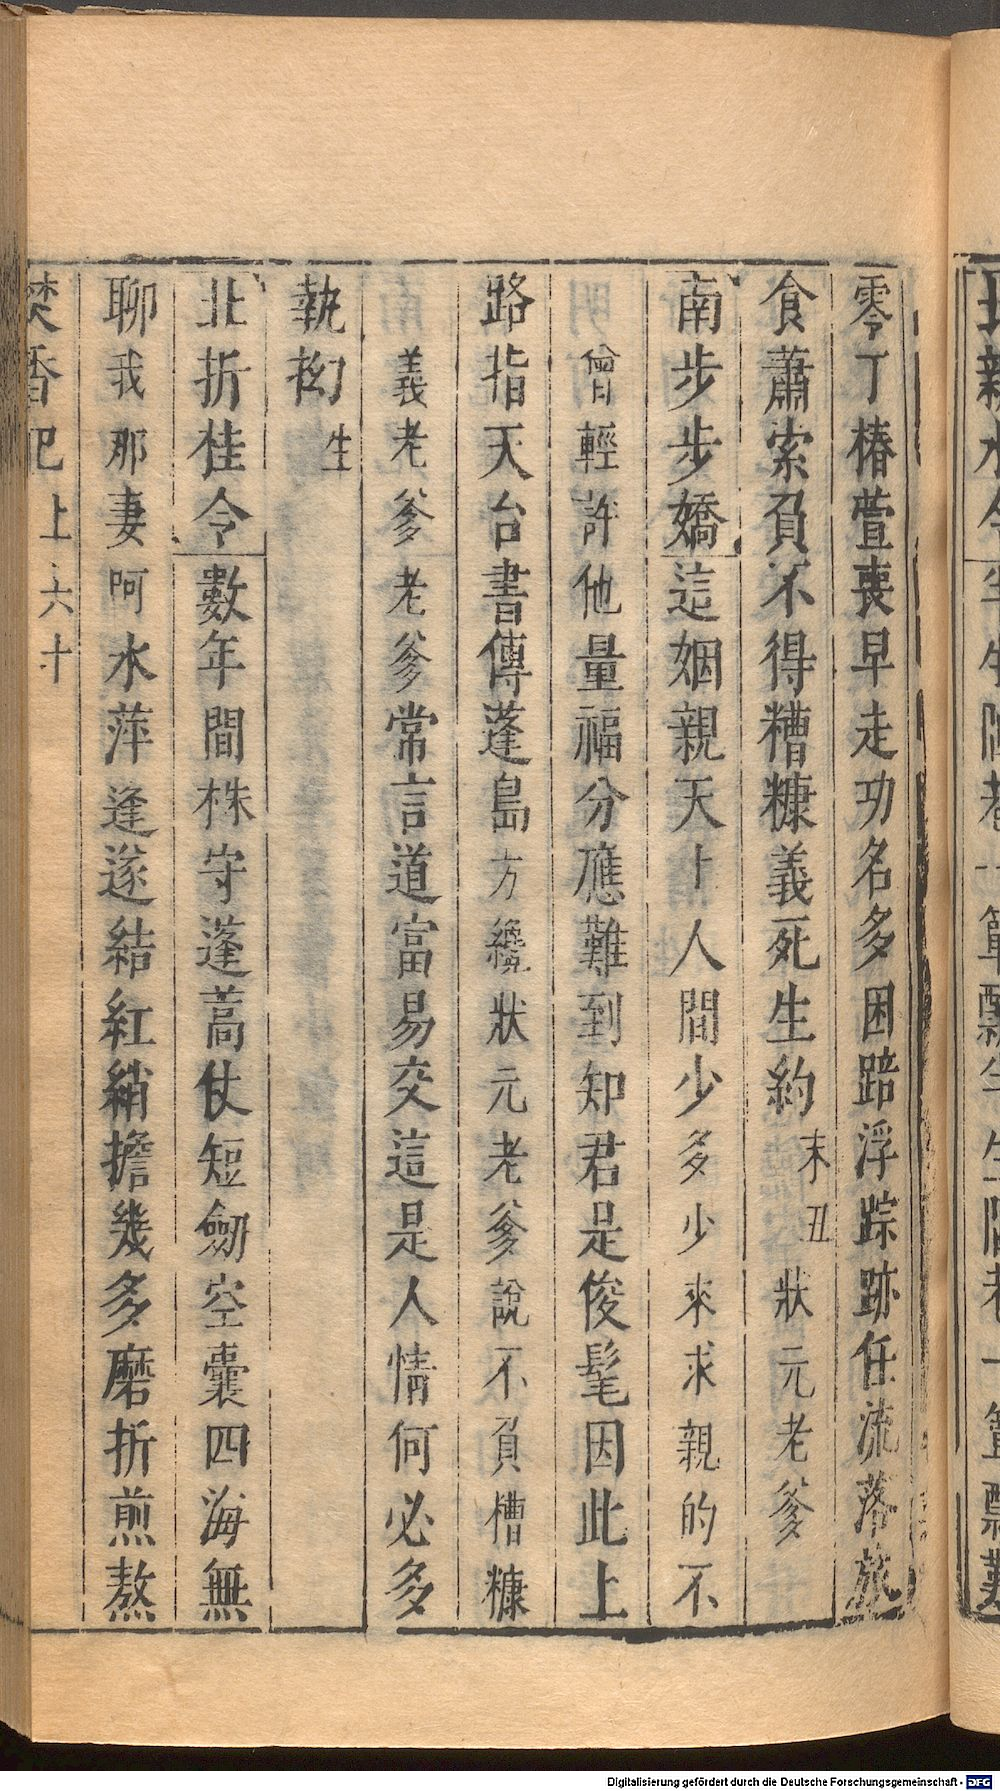 零丁椿萱喪早走功名多困踣浮踪跡任流落旅
食蕭索負不得糟糠義死生約末丑狀元老爹
南步步嬌這姻親天上人間少多少來求親的不
曾輕許他量福分應難到知君是俊髦因此上
路指天台書傳蓬島方纔狀元老爹說不負槽糠
義老爹老爹常言道富易交這是人情何必多
執拗生
北折桂令數年間株守蓬蒿仗短劒空囊四海無
聊我那妻呵水萍逢遂結紅綃擔幾多磨折煎熬
焚香記上六十
Digitalisierung gefördert durch die Deutsche Forschungsgemeinschaft - DFG